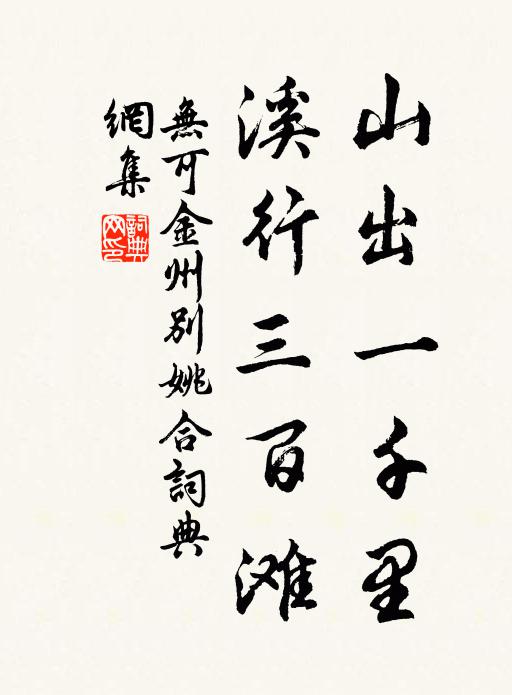 山出一千里
溪行三百滩
無可金州别姚合詞典
網集
詞典網印